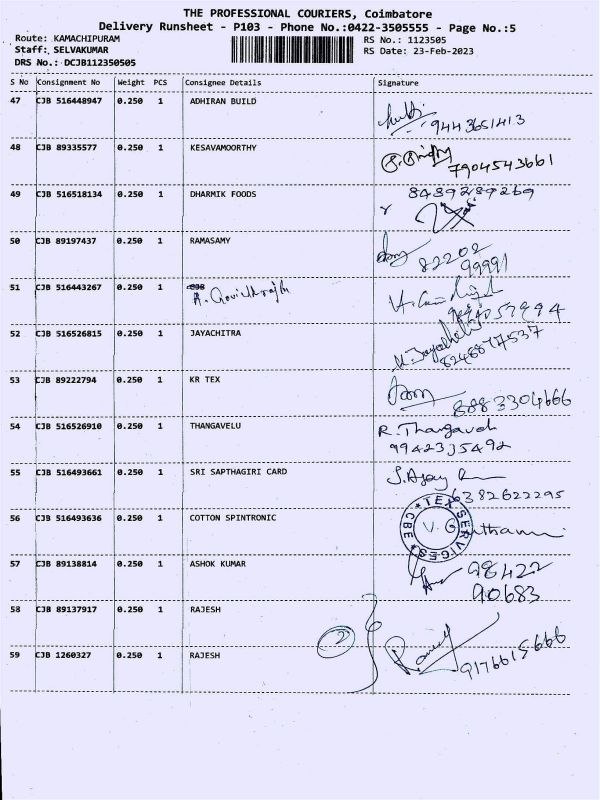 THE PROFESSIONAL COURIERS, Coimbatore
Delivery Runsheet - P103 - Phone No.:0422-3505555 - Page No.:5
Route: KAMACHIPURAM RS No.: 1123505
Staff: SELVAKUMAR RS Date: 23-Feb-2023
DRS No.: DCJB112350505
S No Consignment No Weight PCS Consignee Details Signature
47 CJB 516448947 0.250 1 ADHIRAN BUILD
9443651413
48 CJB 89335577 0.250 1 KESAVAMOORTHY
7904543661
49 CJB 516518134 0.250 1 DHARMIK FOODS 8489289269
50 CJB 89197437 0.250 1 RAMASAMY
82202
99991
51 CJB 516443267 0.250 1
52 CJB 516526815 0.250 1 JAYACHITRA
53 CJB 89222794 0.250 1 KR TEX
8883304666
54 CJB 516526910 0.250 1 THANGAVELU R. Thangavel
9942335492
55 CJB 516493661 0.250 1 SRI SAPTHAGIRI CARD S. Ajay
6382622295
56 CJB 516493636 0.250 1 COTTON SPINTRONIC
TEX SERVICES CBE
57 CJB 89138814 0.250 1 ASHOK KUMAR 98422
90683
58 CJB 89137917 0.250 1 RAJESH
2
59 CJB 1260327 0.250 1 RAJESH 9176615666